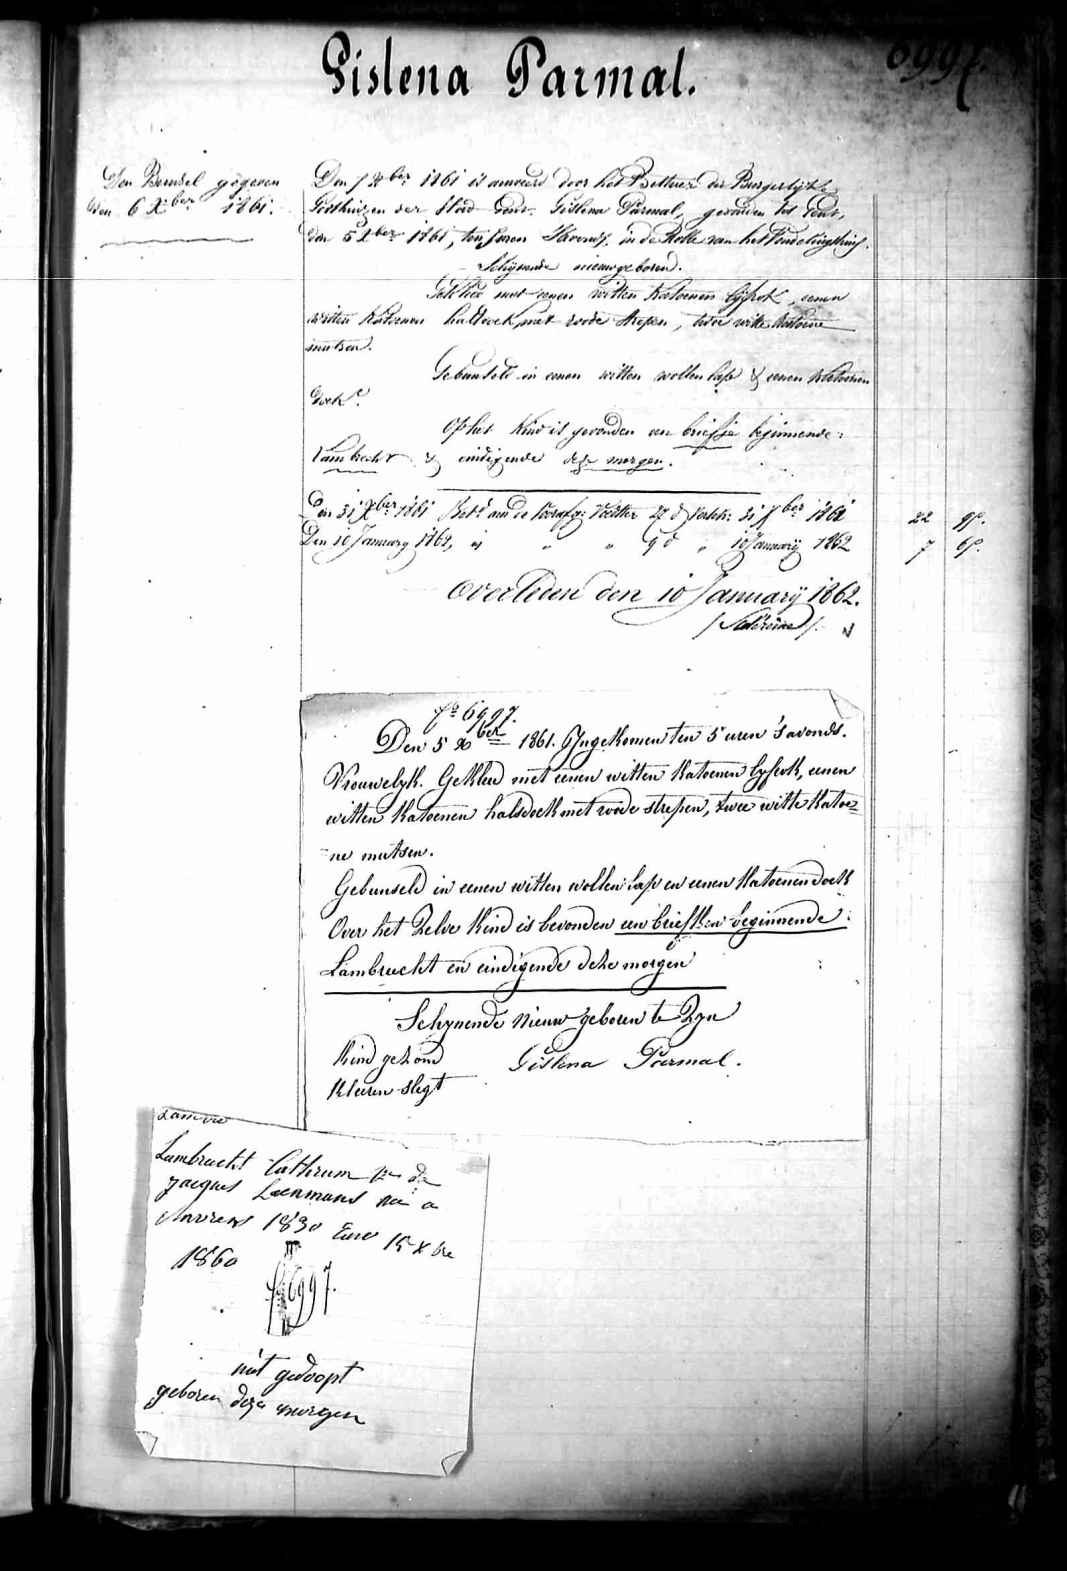 6997.
Gislena Parmal.
Den Bunsel gegeven
den 6 Xber 1861.
Den 7 Xber 1861 is aenveerd door het Bestuer der Burgerlyke
Godshuizen der Stad Gent. Gislena Parmal, gevonden tot Gent,
den 5 Xber 1861, ten 5 uren 's avonds, in de Rolle van het Vondelingshuis.
Schynende nieuwgeboren.
Gekleed met eenen witten Katoenen lyfrok, eenen
witten Katoenen halsdoek met roode strepen, twee witte Katoene
mutsen.
Gebunseld in eenen witten wollen lap & eenen Katoenen
doek.
Op het Kind is gevonden een briefje beginnende:
Lambrecht & eindigende deze morgen.
Den 31 Xber 1861 Bet. aan de Voorafg. Voedster 27 d. verschl. 31 Xber 1861 22 95.
Den 10 January 1862, " " " 9 d " 10 January 1862 7 65.
Overleden den 10 January 1862.
fo 6997.
Den 5 Xber 1861. Ingekomen ten 5 uren 's avonds.
Vrouwelyk. Gekleed met eenen witten Katoenen lyfrok, eenen
witten Katoenen halsdoek met roode strepen, twee witte Katoe=
=ne mutsen.
Gebunseld in eenen witten wollen lap en eenen Katoenen doek
Over het Zelve Kind is bevonden een briefken beginnende:
Lambrecht en eindigende deze morgen
Schynende Nieuw geboren te Zyn
Kind gezond Gislena Parmal.
Kleeren slegt
Lambrecht Cathrum de
Jacques Leenmans né a
Anvers 1830 15 Xbre
1860
fo 6997.
niet gedoopt
geboren deze morgen